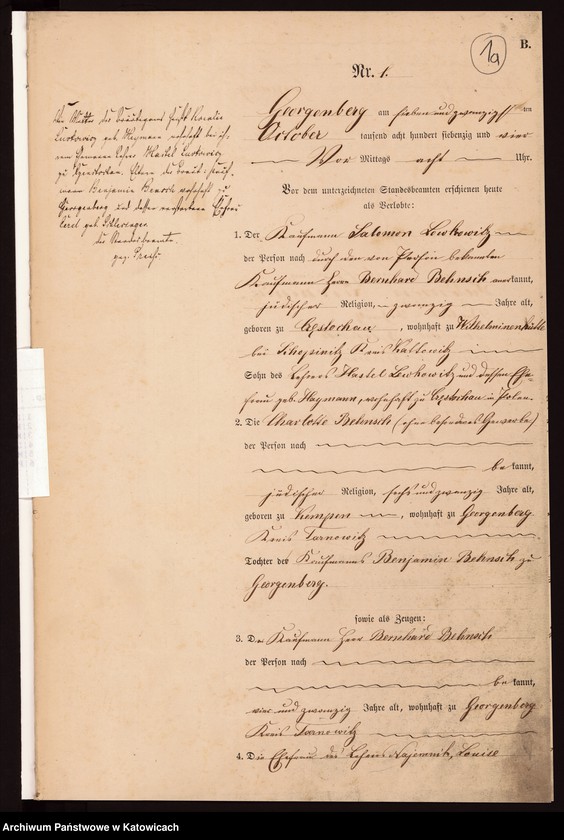 1a
B.
Nr. 1.
Georgenberg am sieben und zwanzigsten
October tausend acht hundert siebenzig und vier
Vor Mittags acht Uhr.
Vor dem unterzeichneten Standesbeamten erschienen heute
als Verlobte:
1. Der Kaufmann Salomon Lewkowitz
der Person nach durch den von Person bekannten
Kaufmann Herrn Bernhard Behnsch anerkannt,
jüdischer Religion, zwanzig Jahre alt,
geboren zu Czestochau, wohnhaft zu Wilhelminenhütte
bei Schoppinitz Kreis Kattowitz
Sohn des Lehrers Hastel Lewkowitz und dessen Ehe-
frau geb. Haymann, wohnhaft zu Czestochau in Polen
2. Die Charlotte Behnsch (ohne besonderes Gewerbe)
der Person nach
bekannt,
jüdischer Religion, sechs und zwanzig Jahre alt,
geboren zu Kempen, wohnhaft zu Georgenberg
Kreis Tarnowitz
Tochter des Kaufmanns Benjamin Behnsch zu
Georgenberg.
sowie als Zeugen:
3. Der Kaufmann Herr Bernhard Behnsch
der Person nach
bekannt,
vier und zwanzig Jahre alt, wohnhaft zu Georgenberg
Kreis Tarnowitz
4. Die Ehefrau des Lehrers Louise
Die Mutter des Bräutigams heißt Rosalie
geb. Haymann wohnhaft bei ihrem
Lehrer
zu Eltern der Braut: Kauf-
mann Benjamin wohnhaft zu
Georgenberg und dessen verstorbene Ehefrau
geb.
Der Standesbeamte.
gez.
Archiwum Państwowe w Katowicach